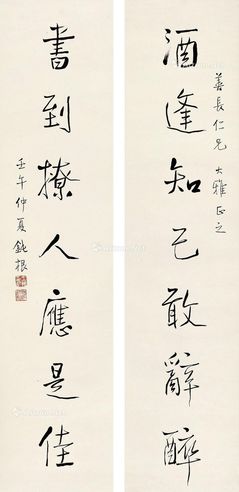 善長仁兄 大雅正之
酒逢知己敢辭醉
書到撩人應是佳
壬午仲夏 鈍根